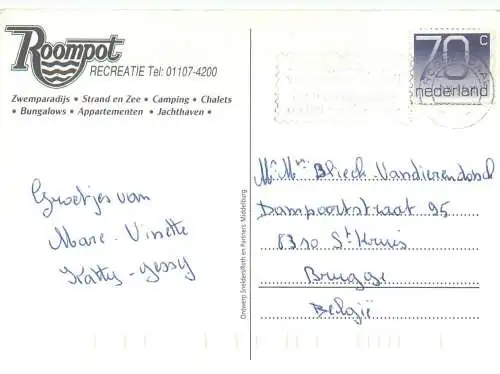 Roompot
RECREATIE Tel: 01107-4200
Zwemparadijs • Strand en Zee • Camping • Chalets
• Bungalows • Appartementen • Jachthaven •
70 c
nederland
Groetjes van
Marc - Vinette
Katty - Jessy
Ontwerp Snelders/Roth en Partners Middelburg
Mr Mevr Blieck - Vandierendonck
Dampoortstraat 95
8310 St Kruis
Brugge
België